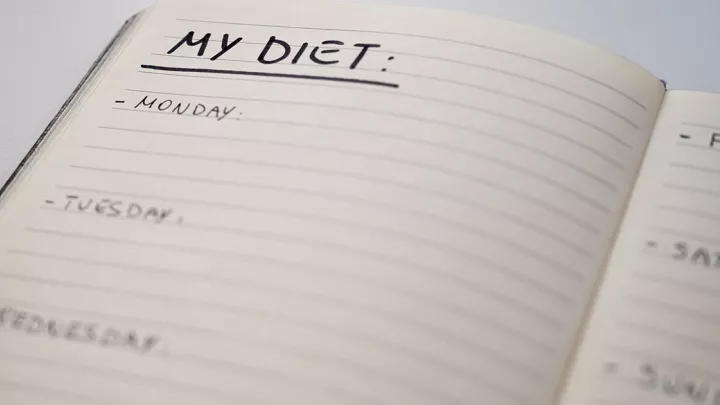 MY DIET:
- MONDAY:
- TUESDAY.
WEDNESDAY.
- F
- SA
- SUN